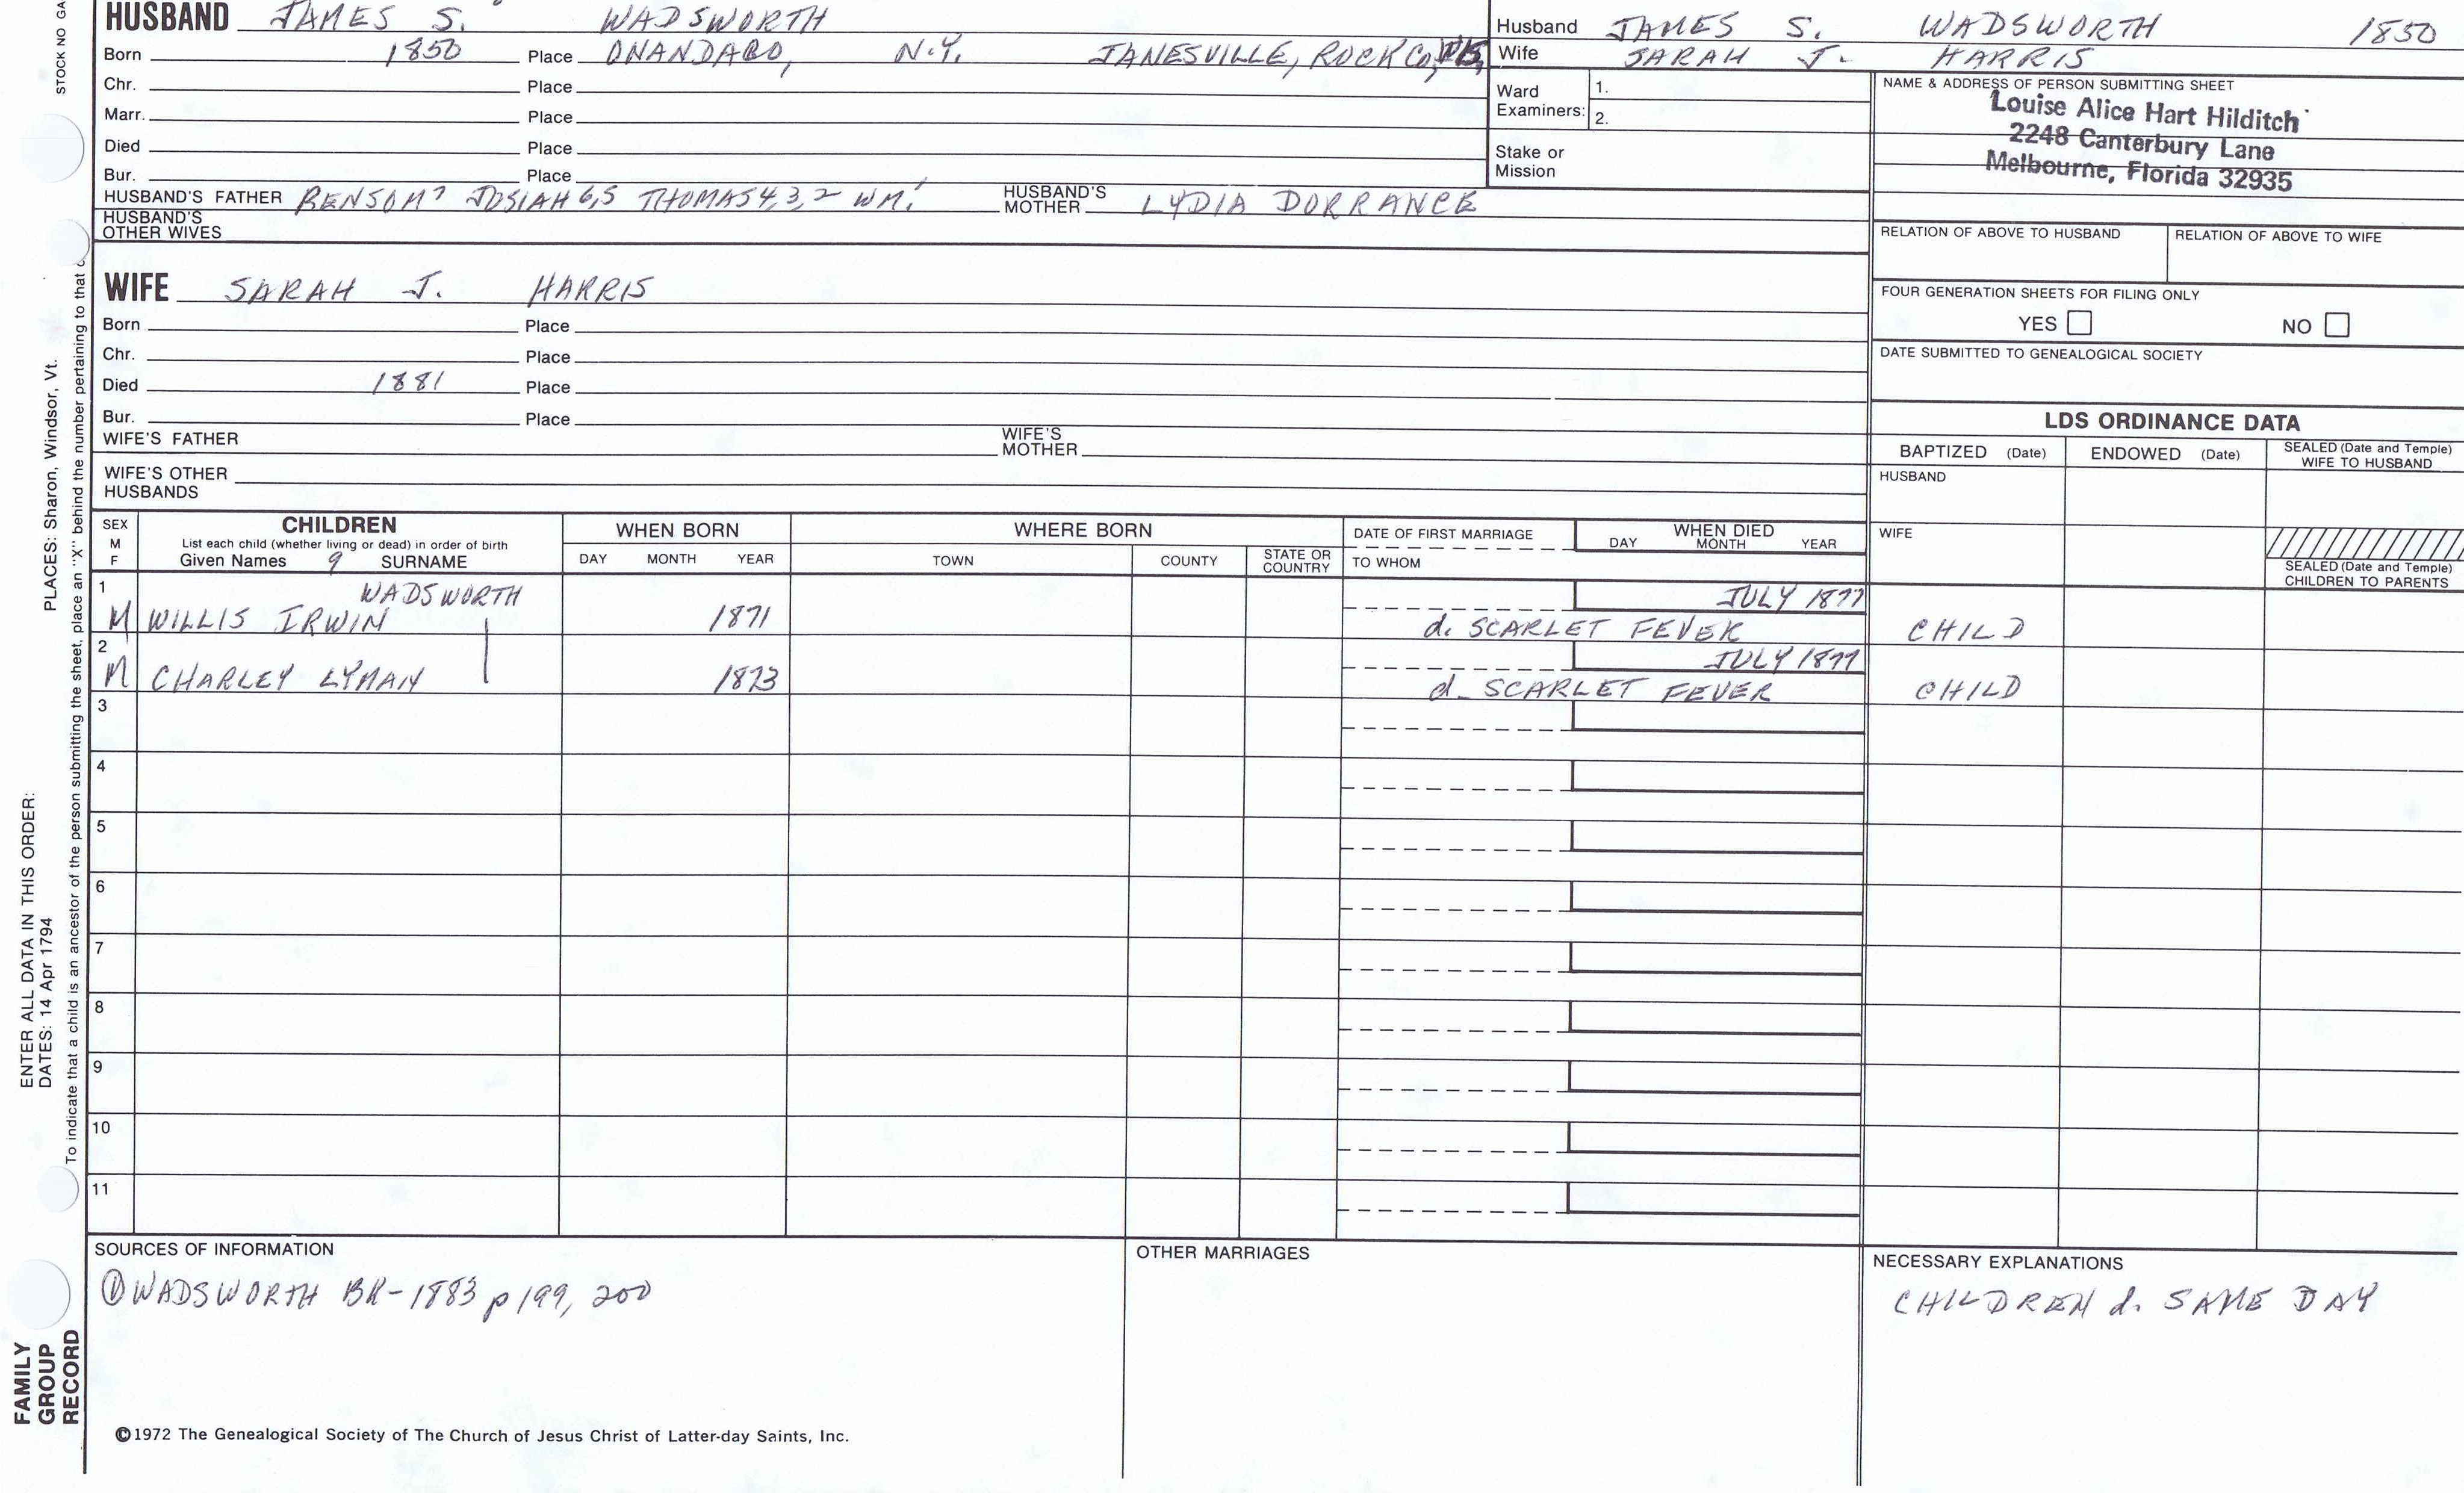 STOCK NO GA
PLACES: Sharon, Windsor, Vt.
ENTER ALL DATA IN THIS ORDER:
DATES: 14 Apr 1794
To indicate that a child is an ancestor of the person submitting the sheet, place an "X" behind the number pertaining to that c
FAMILY
GROUP
RECORD
HUSBAND JAMES S. WADSWORTH
Born 1850 Place ONANDAGO, N.Y. JANESVILLE, ROCK Co, WIS,
Chr. Place
Marr. Place
Died Place
Bur. Place
HUSBAND'S FATHER RENSOM7 JOSIAH 6,5 THOMAS 4,3,2 WM.1 HUSBAND'S MOTHER LYDIA DORRANCE
HUSBAND'S
OTHER WIVES
Husband JAMES S. WADSWORTH 1850
Wife SARAH J. HARRIS
Ward
Examiners:
1.
2.
Stake or
Mission
NAME & ADDRESS OF PERSON SUBMITTING SHEET
Louise Alice Hart Hilditch
2248 Canterbury Lane
Melbourne, Florida 32935
RELATION OF ABOVE TO HUSBAND RELATION OF ABOVE TO WIFE
FOUR GENERATION SHEETS FOR FILING ONLY
YES NO
DATE SUBMITTED TO GENEALOGICAL SOCIETY
WIFE SARAH J. HARRIS
Born Place
Chr. Place
Died 1881 Place
Bur. Place
WIFE'S FATHER WIFE'S MOTHER
WIFE'S OTHER
HUSBANDS
LDS ORDINANCE DATA
BAPTIZED (Date) ENDOWED (Date) SEALED (Date and Temple) WIFE TO HUSBAND
HUSBAND
WIFE
SEALED (Date and Temple)
CHILDREN TO PARENTS
SEX
M
F
CHILDREN
List each child (whether living or dead) in order of birth
Given Names 9 SURNAME
WHEN BORN
DAY MONTH YEAR
WHERE BORN
TOWN COUNTY STATE OR COUNTRY
DATE OF FIRST MARRIAGE
TO WHOM
WHEN DIED
DAY MONTH YEAR
1 WADSWORTH JULY 1877
M WILLIS IRWIN 1871 d. SCARLET FEVER CHILD
2 JULY 1877
M CHARLEY LYMAN 1873 d. SCARLET FEVER CHILD
3
4
5
6
7
8
9
10
11
SOURCES OF INFORMATION
① WADSWORTH BK-1883 p 199, 200
OTHER MARRIAGES
NECESSARY EXPLANATIONS
CHILDREN d. SAME DAY
©1972 The Genealogical Society of The Church of Jesus Christ of Latter-day Saints, Inc.